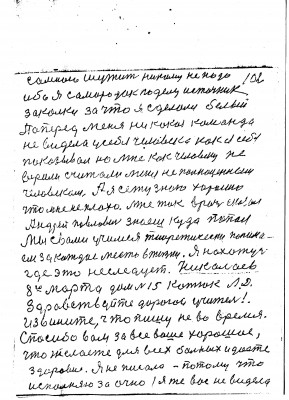 102
самого шутит никому не надо
ибо я самородок поделу источник
закалки за что я сделали белый
Наперед меня никакая команда
не видела у себя человека как я себя
показывал но мне как человеку не
верили считали меня не полноценным
человеком. А я сету знаю хорошо
что мне не плохо. Мне так врач сказал
Андрей Павлович знаеш куда попал
Мы с вами учимся теоретически понима-
ем за каждое место в жизни. Я нахожусь
где это не следует. Николаев
8го марта дом №15 Коток Л.Д.
Здравствуйте дорогой учитель!
Извините, что пишу не во время.
Спасибо вам за все ваше хорошое,
что желаете для всех больных и даете
здоровие. Я не писала - потому что
исполняю за очно! Я же вас не видела